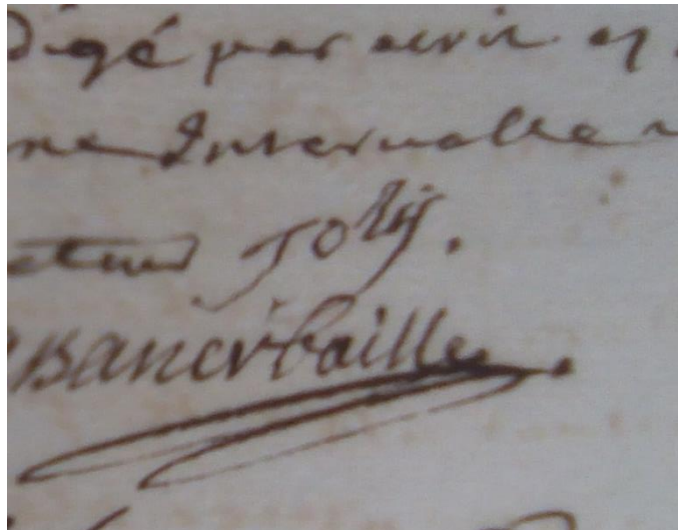 digé par écrit et
ne Intervalle
Joly.
Bancrbaille